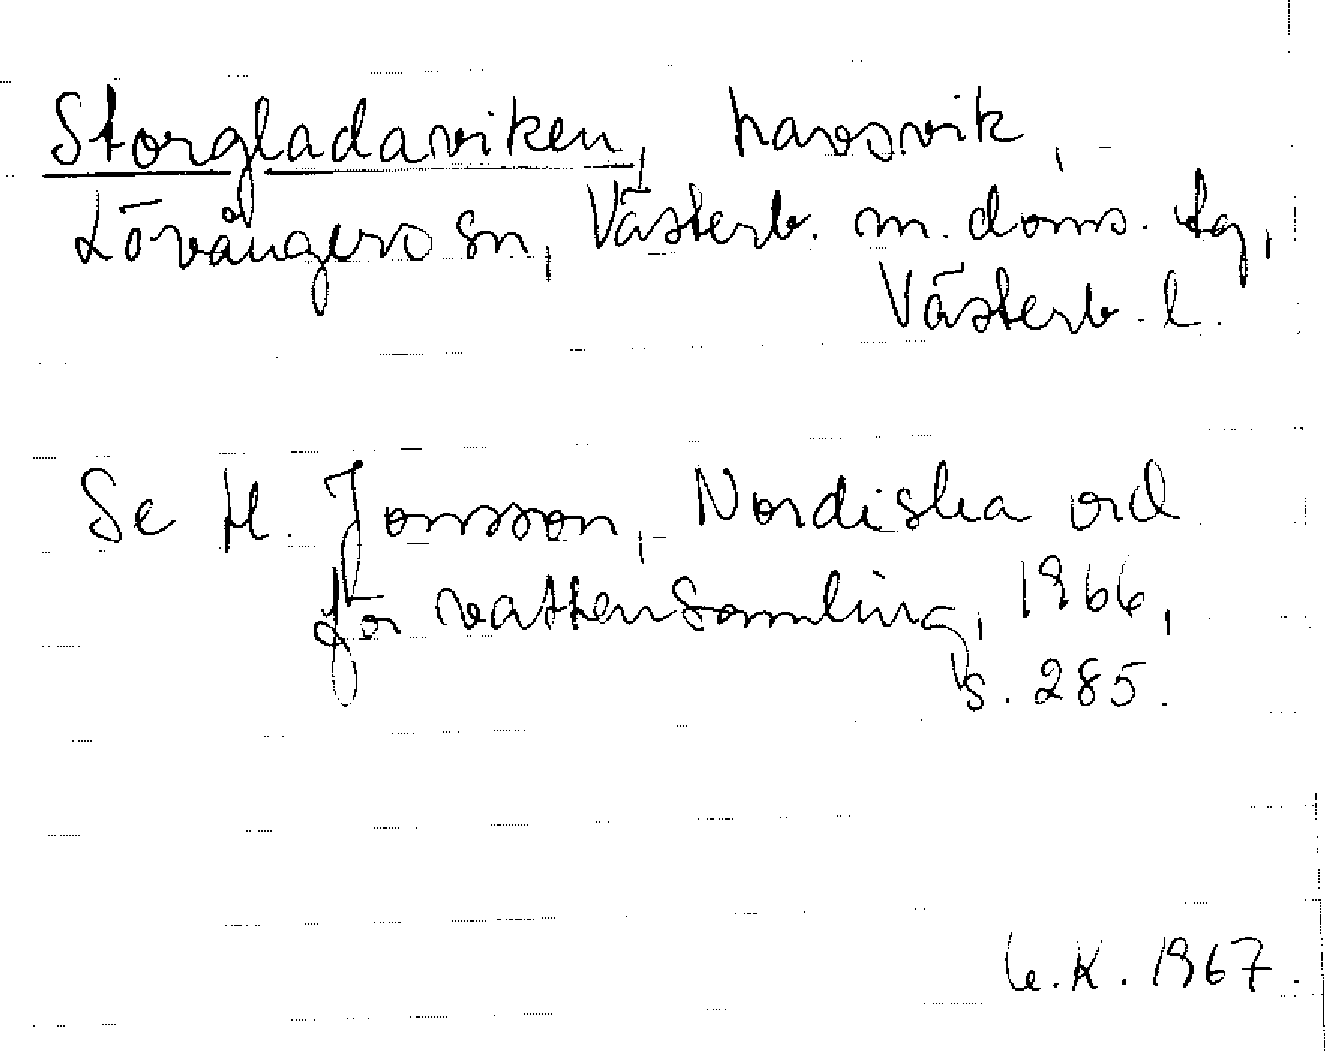 Storgladaviken, havsvik,
Lövångers sn, Västerb. m. doms. tg,
Västerb. l.
Se H. Jonsson, Nordiska ord
för vattensamling, 1966,
s. 285.
K. 1967.